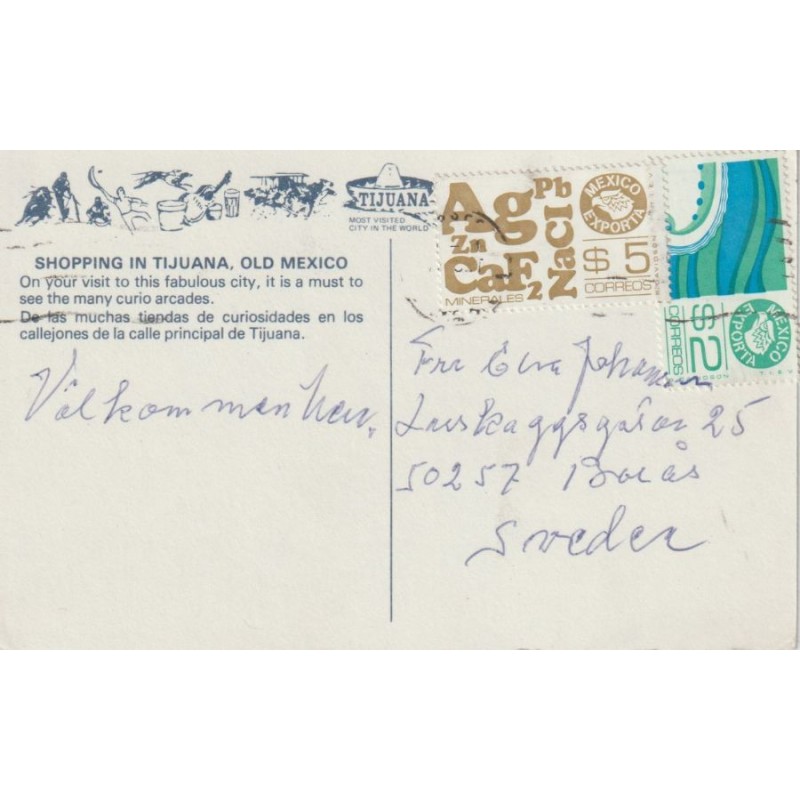 TIJUANA
MOST VISITED
CITY IN THE WORLD
SHOPPING IN TIJUANA, OLD MEXICO
On your visit to this fabulous city, it is a must to
see the many curio arcades.
De las muchas tiendas de curiosidades en los
callejones de la calle principal de Tijuana.
Välkommen
Ag Pb
Zn NaCl
CaF2
MINERALES
MEXICO
EXPORTA
$5
CORREOS
MEXICO
EXPORTA
$2
CORREOS
Fru
25
50257 Borås
Sweden